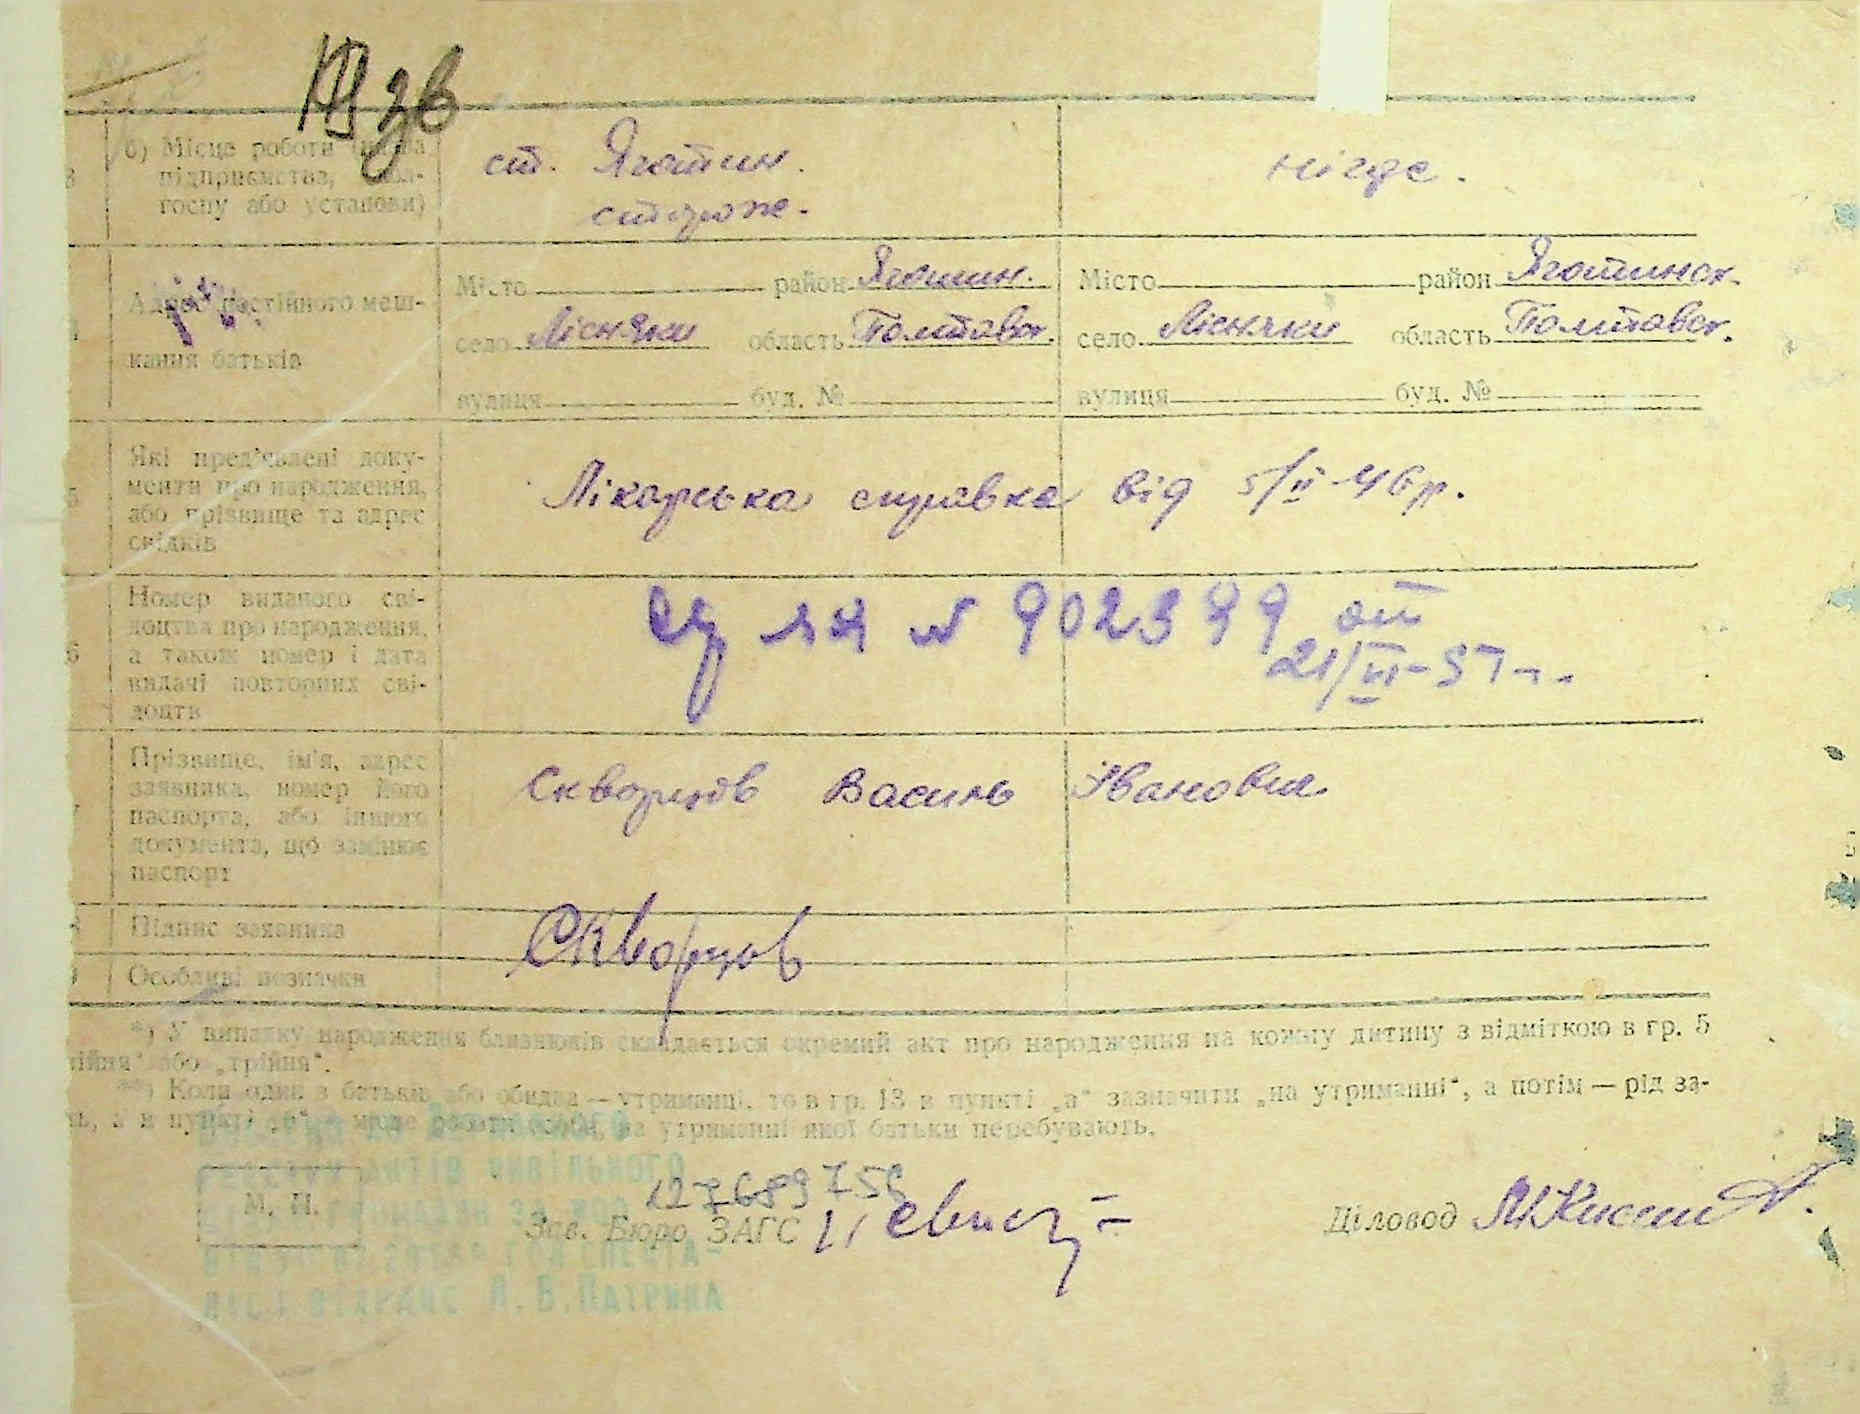 б) Місце роботи (назва
підприємства, колгоспу або установи)
ст. Яготин.
сторож.
нігде.
Адрес постійного мешкання батьків
Місто район Яготин.
село Лісняки область Полтавск.
вулиця буд. №
Місто район Яготинск.
село Лісняки область Полтавск.
вулиця буд. №
Які пред'явлені документи про народження,
або прізвище та адрес
свідків
Лікарська справка від 5/II-46 р.
Номер виданого свідоцтва про народження,
а також номер і дата
видачі повторних свідоцтв
№ 902399 от
21/III-57 г.
Прізвище, ім'я, адрес
заявника, номер його
паспорта, або іншого
документа, що замінює
паспорт
Скворцов Василь Іванович
Підпис заявника
Скворцов
Особливі позначки
*) У випадку народження близнюків складається окремий акт про народження на кожну дитину з відміткою в гр. 5
або „трійня“.
**) Коли один з батьків або обидва — утриманці, то в гр. 13 в пункті „а“ зазначити „на утриманні“, а потім — рід за-
а в пункті „б“ — місце роботи особи, на утриманні якої батьки перебувають.
М. П.
Зав. Бюро ЗАГС
Діловод
актів цивільного
громадян за
Л. В. Патрика